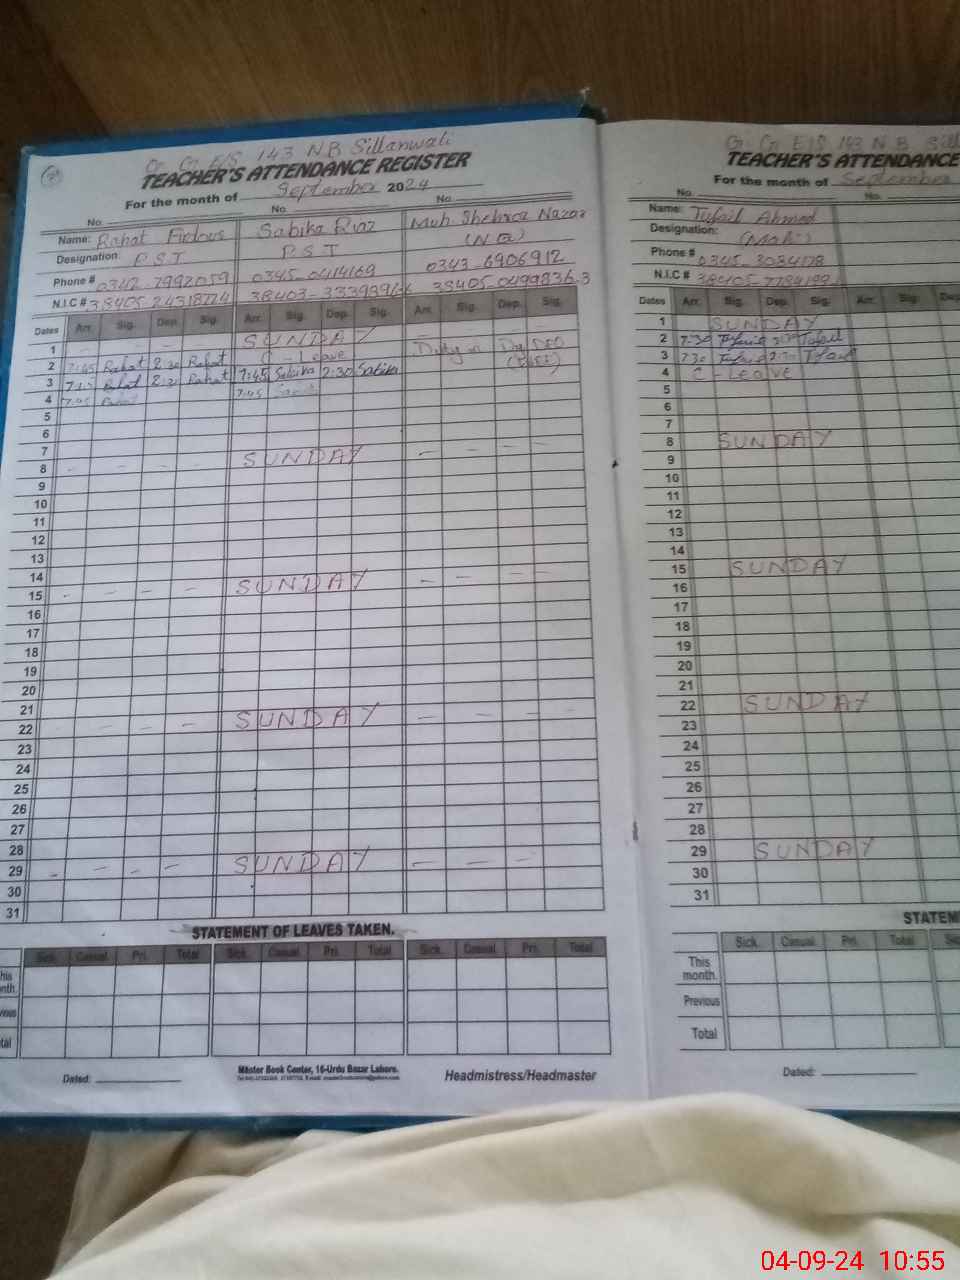 G. G. E/S 143 NB Sillanwali
TEACHER'S ATTENDANCE REGISTER
For the month of September 2024
No. No. No.
Name: Rahat Firdous Sabika Riaz Muh Shehroz Nazar
Designation: P.S.T P.S.T (N Q)
Phone # 0342-7992059 0345-0414169 0343-6906912
N.I.C # 38405-24318774 38403-3339396-6 38405-0499836-3
Dates Arr. Sig. Dep. Sig. Arr. Sig. Dep. Sig. Arr. Sig. Dep. Sig.
1 SUNDAY
2 7:45 Rahat 2:30 Rahat C-Leave Duty in Dy DEO
3 7:45 Rahat 2:30 Rahat 7:45 Sabika 2:30 Sabika
4 7:45 Rahat 7:45
5
6
7
8 - - - - SUNDAY - - - -
9
10
11
12
13
14
15 - - - - SUNDAY - - - -
16
17
18
19
20
21
22 - - - - SUNDAY - - - -
23
24
25
26
27
28
29 - - - - SUNDAY - - -
30
31
STATEMENT OF LEAVES TAKEN.
Sick. Casual. Pri. Total Sick. Casual. Pri. Total Sick. Casual. Pri. Total
his
nth.
vious
tal
Dated:
Master Book Center, 16-Urdu Bazar Lahore.
Headmistress/Headmaster
G. G E/S 143 N.B Sill
TEACHER'S ATTENDANCE
For the month of September
No. No.
Name: Tufail Ahmed
Designation: (Mali)
Phone # 0345-3084178
N.I.C # 38405-7784199
Dates Arr. Sig. Dep. Sig. Arr. Sig. Dep
1 SUNDAY
2 7:30 Tufail 2:30 Tufail
3 7:30 Tufail 2:30 Tufail
4 C-Leave
5
6
7
8 SUNDAY
9
10
11
12
13
14
15 SUNDAY
16
17
18
19
20
21
22 SUNDAY
23
24
25
26
27
28
29 SUNDAY
30
31
STATEM
Sick. Casual. Pri. Total Sic
This
month.
Previous
Total
Dated:
04-09-24 10:55